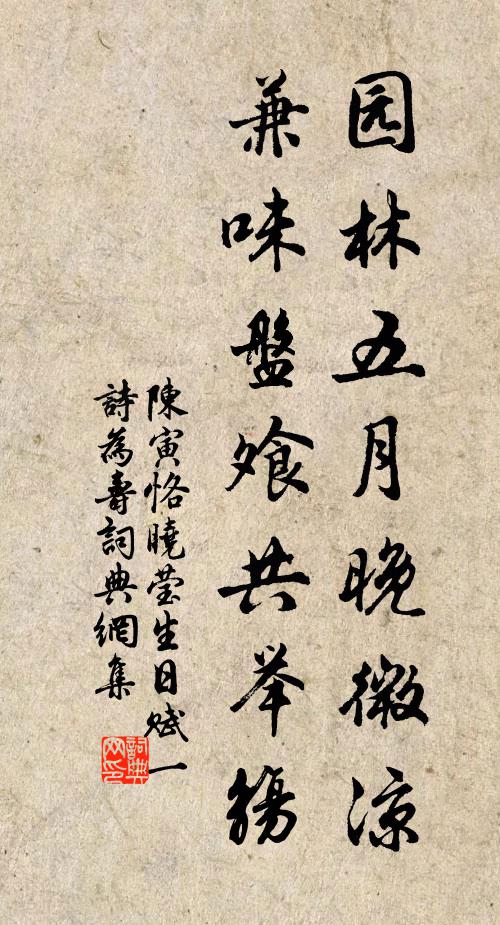 园林五月晚微凉
兼味盤飧共举觴
陳寅恪曉莹生日赋一
詩為壽詞典網集
詞典
网印